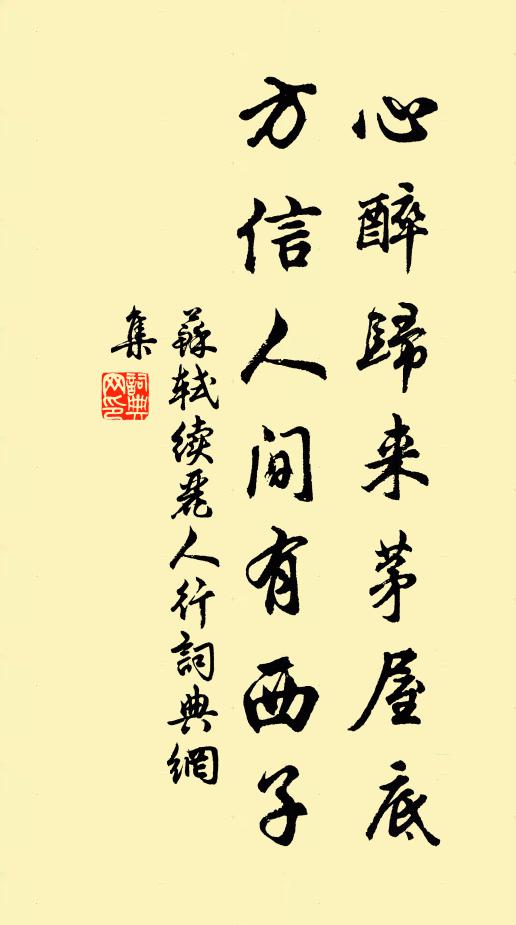 心醉歸来茅屋底
方信人间有西子
蘇軾续麗人行詞典網
集
詞典网印